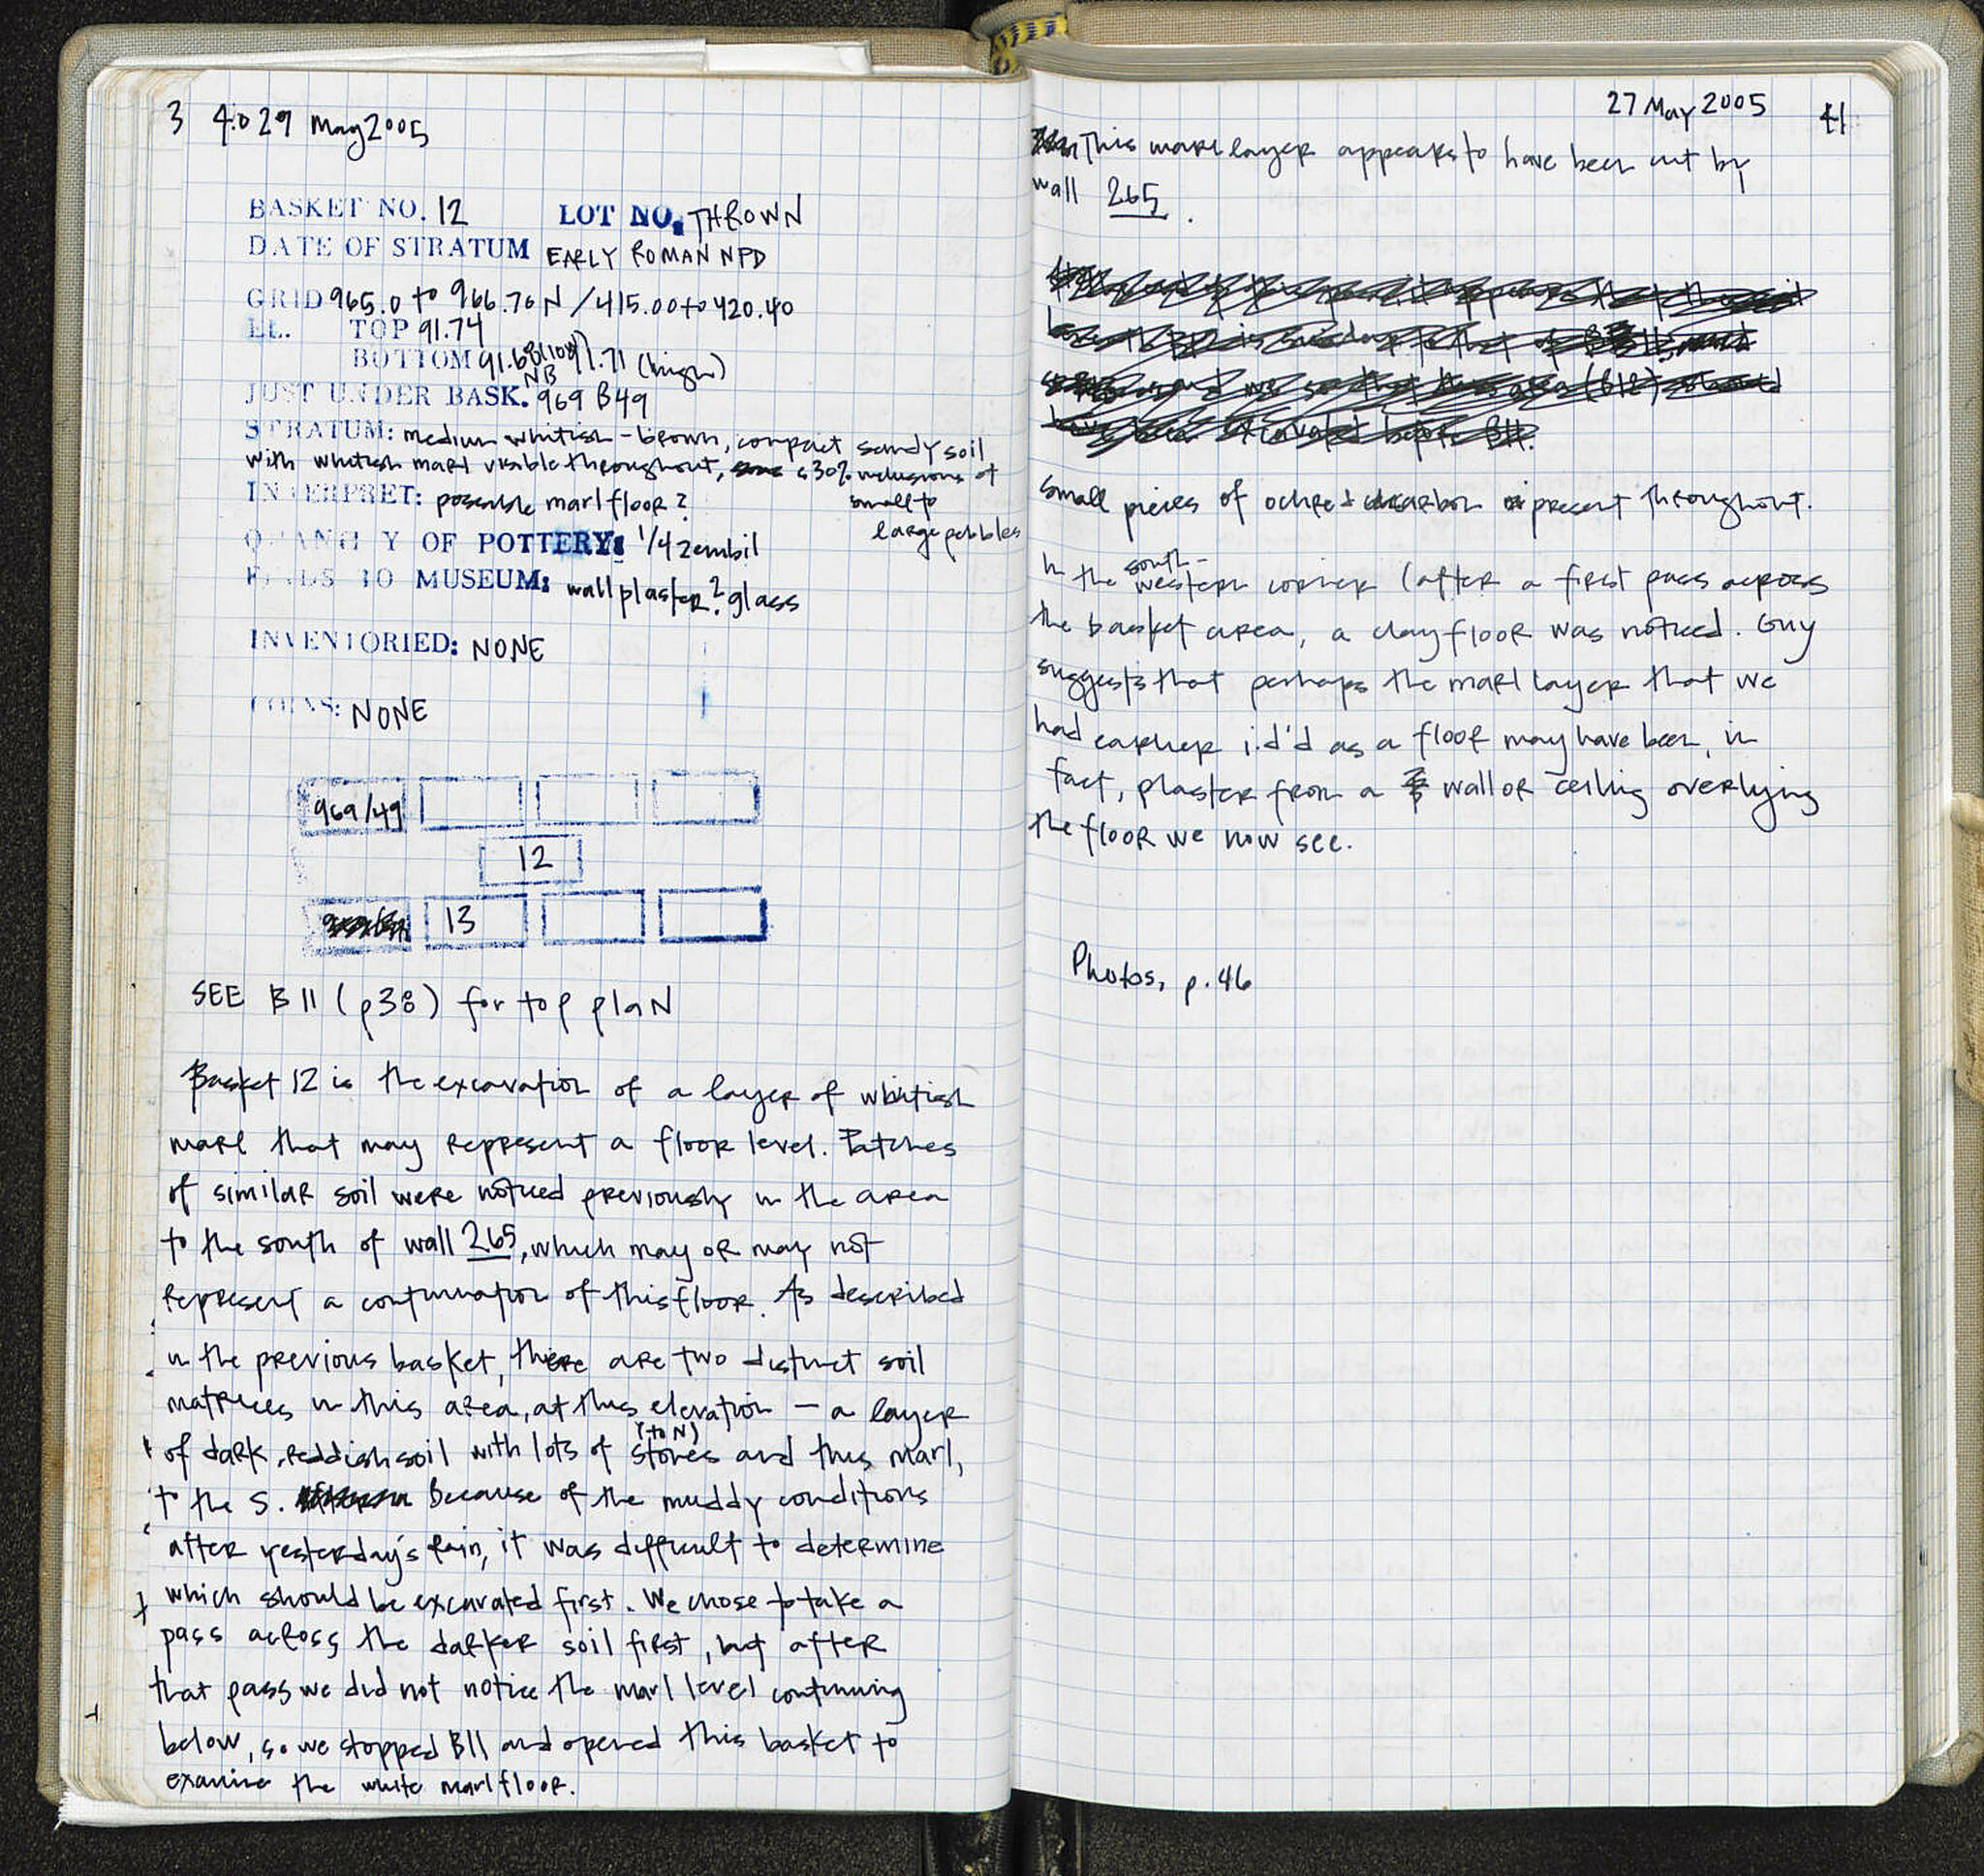 3 40 29 May 2005
BASKET NO. 12 LOT NO. THROWN
DATE OF STRATUM EARLY ROMAN NPD
GRID 965.0 to 966.70 N / 415.00 to 420.40
EL. TOP 91.74
BOTTOM 91.68 (low) 91.71 (high)
NB
JUST UNDER BASK. 969 B49
STRATUM: medium whitish-brown, compact sandy soil
with whitish marl visible throughout, ≤30% inclusions of
small to
large pebbles
INTERPRET: possible marl floor?
QUANTITY OF POTTERY: 1/4 zembil
FINDS TO MUSEUM: wall plaster? glass
INVENTORIED: NONE
COINS: NONE
969/49
12
13
SEE B11 (p38) for top plan
Basket 12 is the excavation of a layer of whitish
marl that may represent a floor level. Patches
of similar soil were noticed previously in the area
to the south of wall 265, which may or may not
represent a continuation of this floor. As described
in the previous basket, there are two distinct soil
matrices in this area, at this elevation – a layer
(to N)
of dark, reddish soil with lots of stones and this marl,
to the S. Because of the muddy conditions
after yesterday's rain, it was difficult to determine
which should be excavated first. We chose to take a
pass across the darker soil first, but after
that pass we did not notice the marl level continuing
below, so we stopped B11 and opened this basket to
examine the white marl floor.
27 May 2005 41
This marl layer appears to have been cut by
wall 265.
small pieces of ochre & carbon present throughout.
In the south-western corner (after a first pass across
the basket area, a clay floor was noticed. Guy
suggests that perhaps the marl layer that we
had earlier i.d'd as a floor may have been, in
fact, plaster from a wall or ceiling overlying
the floor we now see.
Photos, p. 46